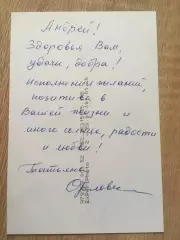 Андрей!
Здоровья Вам,
удачи, добра!
Исполнения желаний,
позитива в
Вашей жизни и
много солнца, радости
и любви!
Татьяна
Орлова